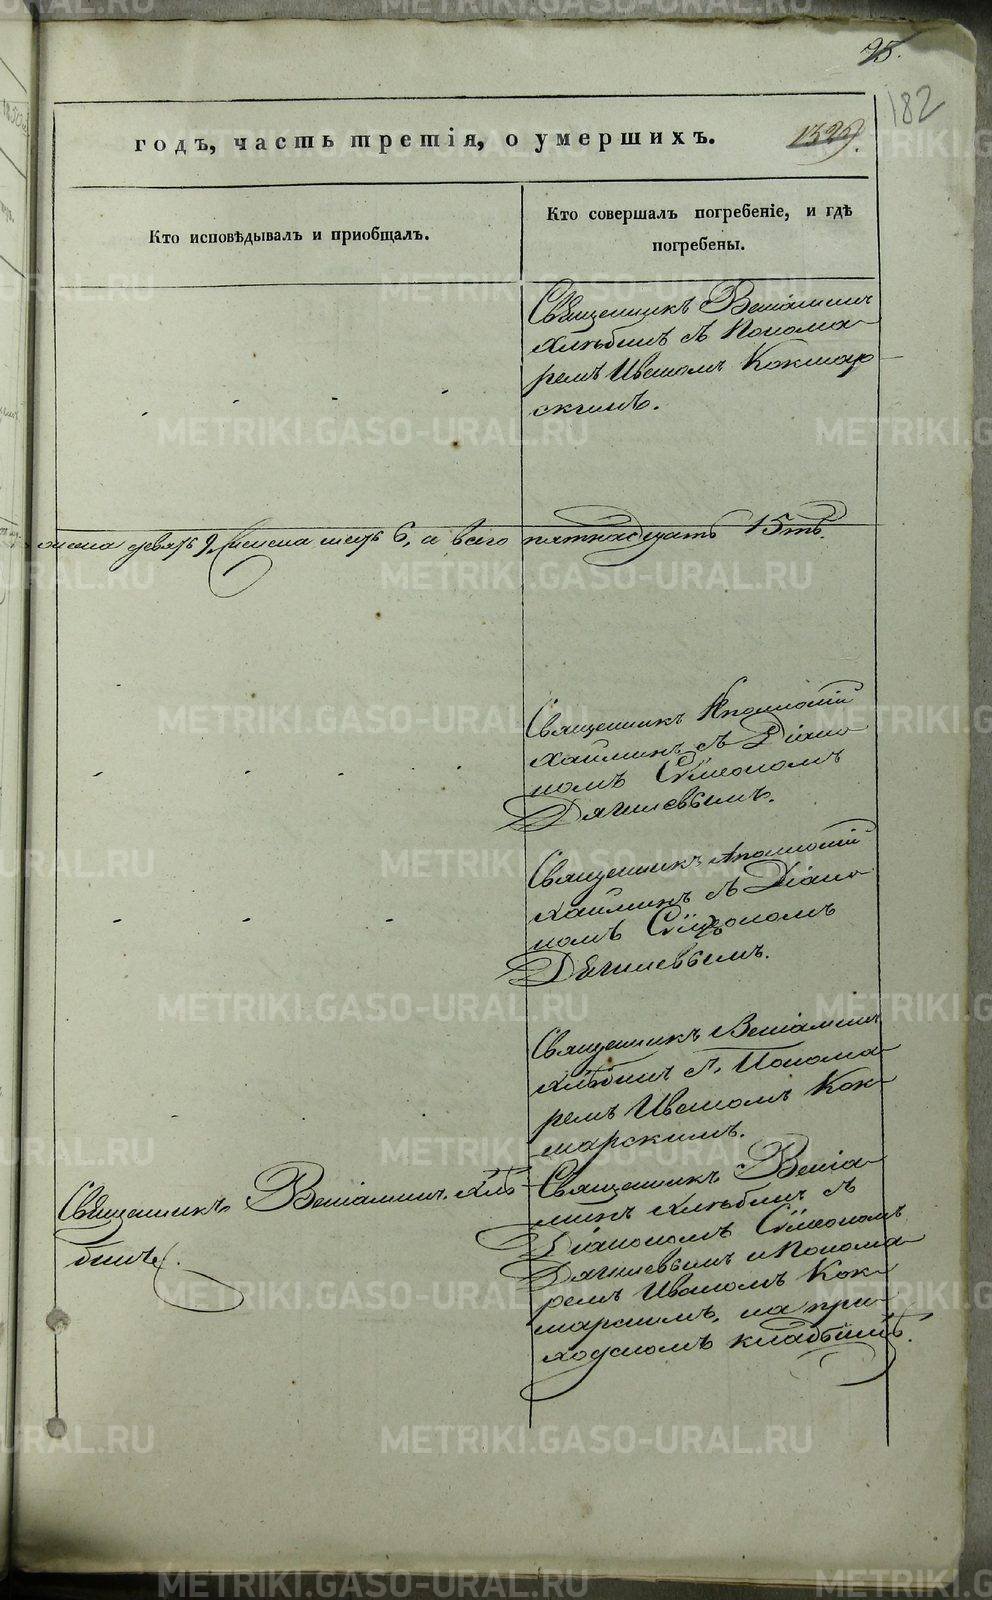 95.
182
годъ, часть третія, о умершихъ.
1329.
Кто исповѣдывалъ и приобщалъ.
Кто совершалъ погребеніе, и гдѣ
погребены.
Священникъ Веніаминъ
Хлѣбинъ съ Понома-
ремъ Иваномъ Кокшар-
скимъ.
девять 9, женска шесть 6, а всего пятнадцать 15ть.
Священникъ Аполлоній
Хаиминъ съ Діако-
номъ Сѵмеономъ
Дягилевымъ.
Священникъ Аполлоній
Хаиминъ съ Діако-
номъ Сѵмеономъ
Дягилевымъ.
Священникъ Веніаминъ
Хлѣбинъ съ Понома-
ремъ Иваномъ Кок-
шарскимъ.
Священникъ Веніаминъ Хлѣ-
бинъ.
Священникъ Веніа-
минъ Хлѣбинъ съ
Діакономъ Сѵмеономъ
Дягилевымъ и Понома-
ремъ Иваномъ Кок-
шарскимъ, на при-
ходскомъ кладбищѣ.
METRIKI.GASO-URAL.RU